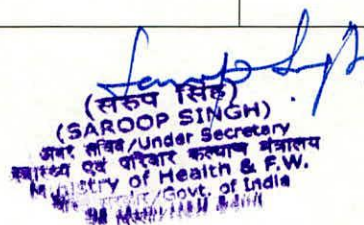 (सरूप सिंह)
(SAROOP SINGH)
अवर सचिव/Under Secretary
स्वास्थ्य एवं परिवार कल्याण मंत्रालय
Ministry of Health & F.W.
/Govt. of India